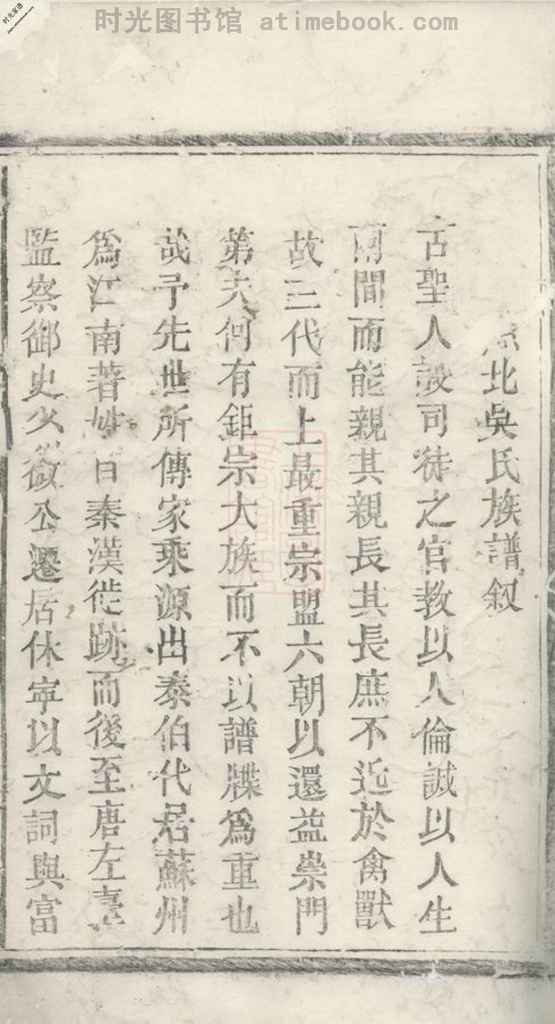 时光图书馆 atimebook.com
北吳氏族譜叙
古聖人設司徒之官教以人倫誠以人生
兩間而能親其親長其長庶不近於禽獸
故三代而上最重宗盟六朝以還益崇門
第夫何有鉅宗大族而不以譜牒爲重也
哉予先世所傳家乘源出泰伯代居蘇州
爲江南著姓自秦漢徙跡而後至唐左臺
監察御史少微公遷居休寧以文詞與富